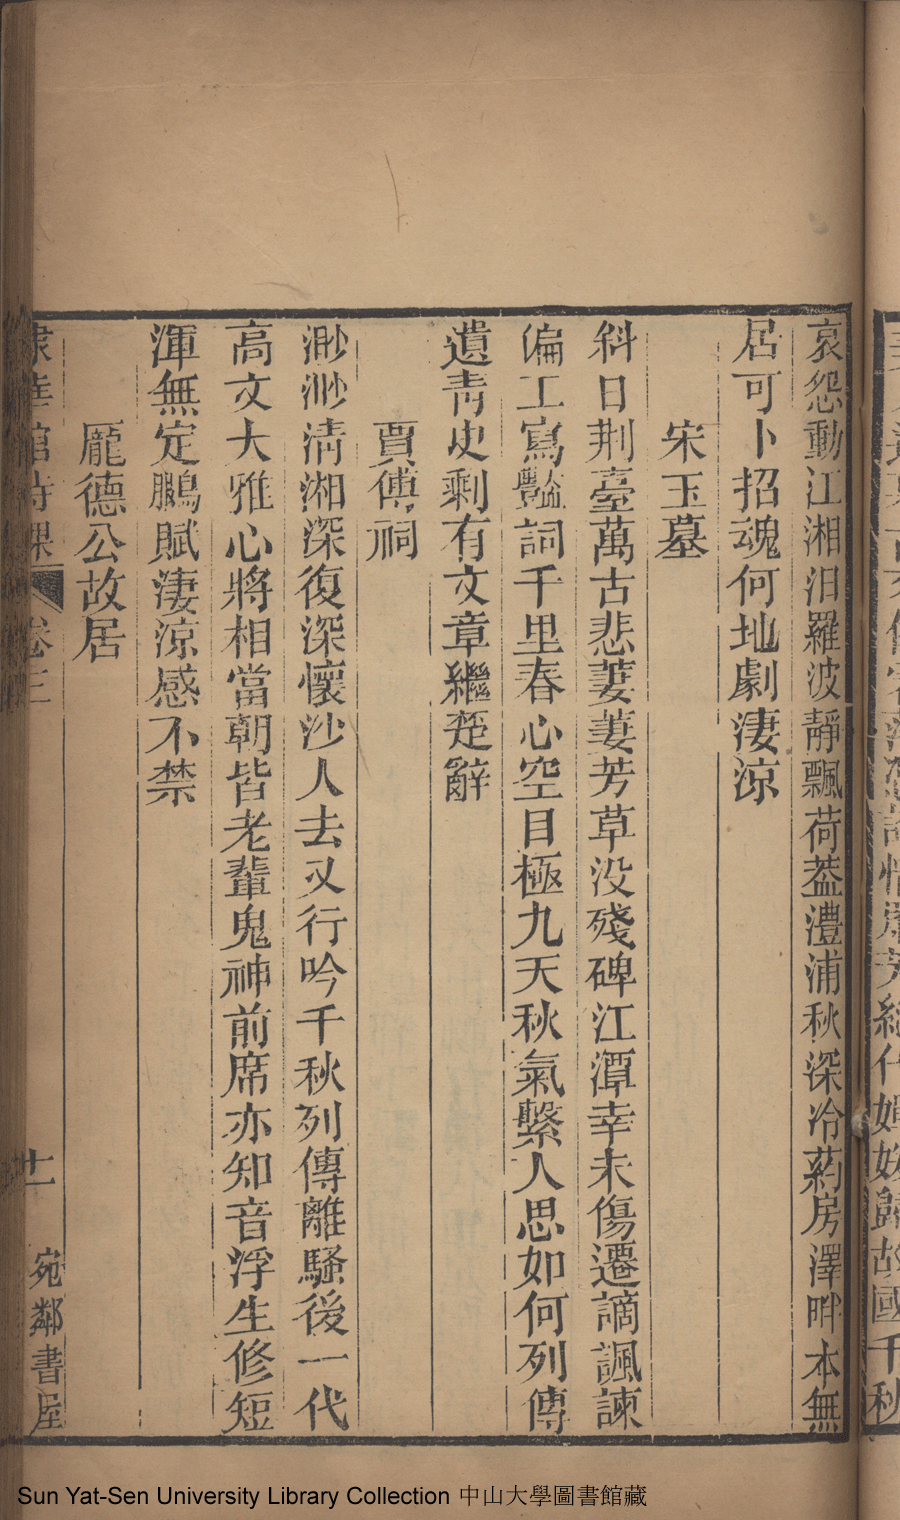 哀怨動江湘汨羅波靜飄荷葢澧浦秋深冷葯房澤畔本無
居可卜招魂何地劇淒涼
宋玉墓
斜日荆臺萬古悲萋萋芳草没殘碑江潭幸未傷遷謫諷諫
偏工寫豔詞千里春心空目極九天秋氣繫人思如何列傳
遺青史剩有文章繼楚辭
賈傅祠
渺渺清湘深復深懷沙人去又行吟千秋列傳離騷後一代
高文大雅心將相當朝皆老輩鬼神前席亦知音浮生修短
渾無定鵩賦淒涼感不禁
龎德公故居
館詩課 卷三 十一 宛鄰書屋
Sun Yat-Sen University Library Collection 中山大學圖書館藏